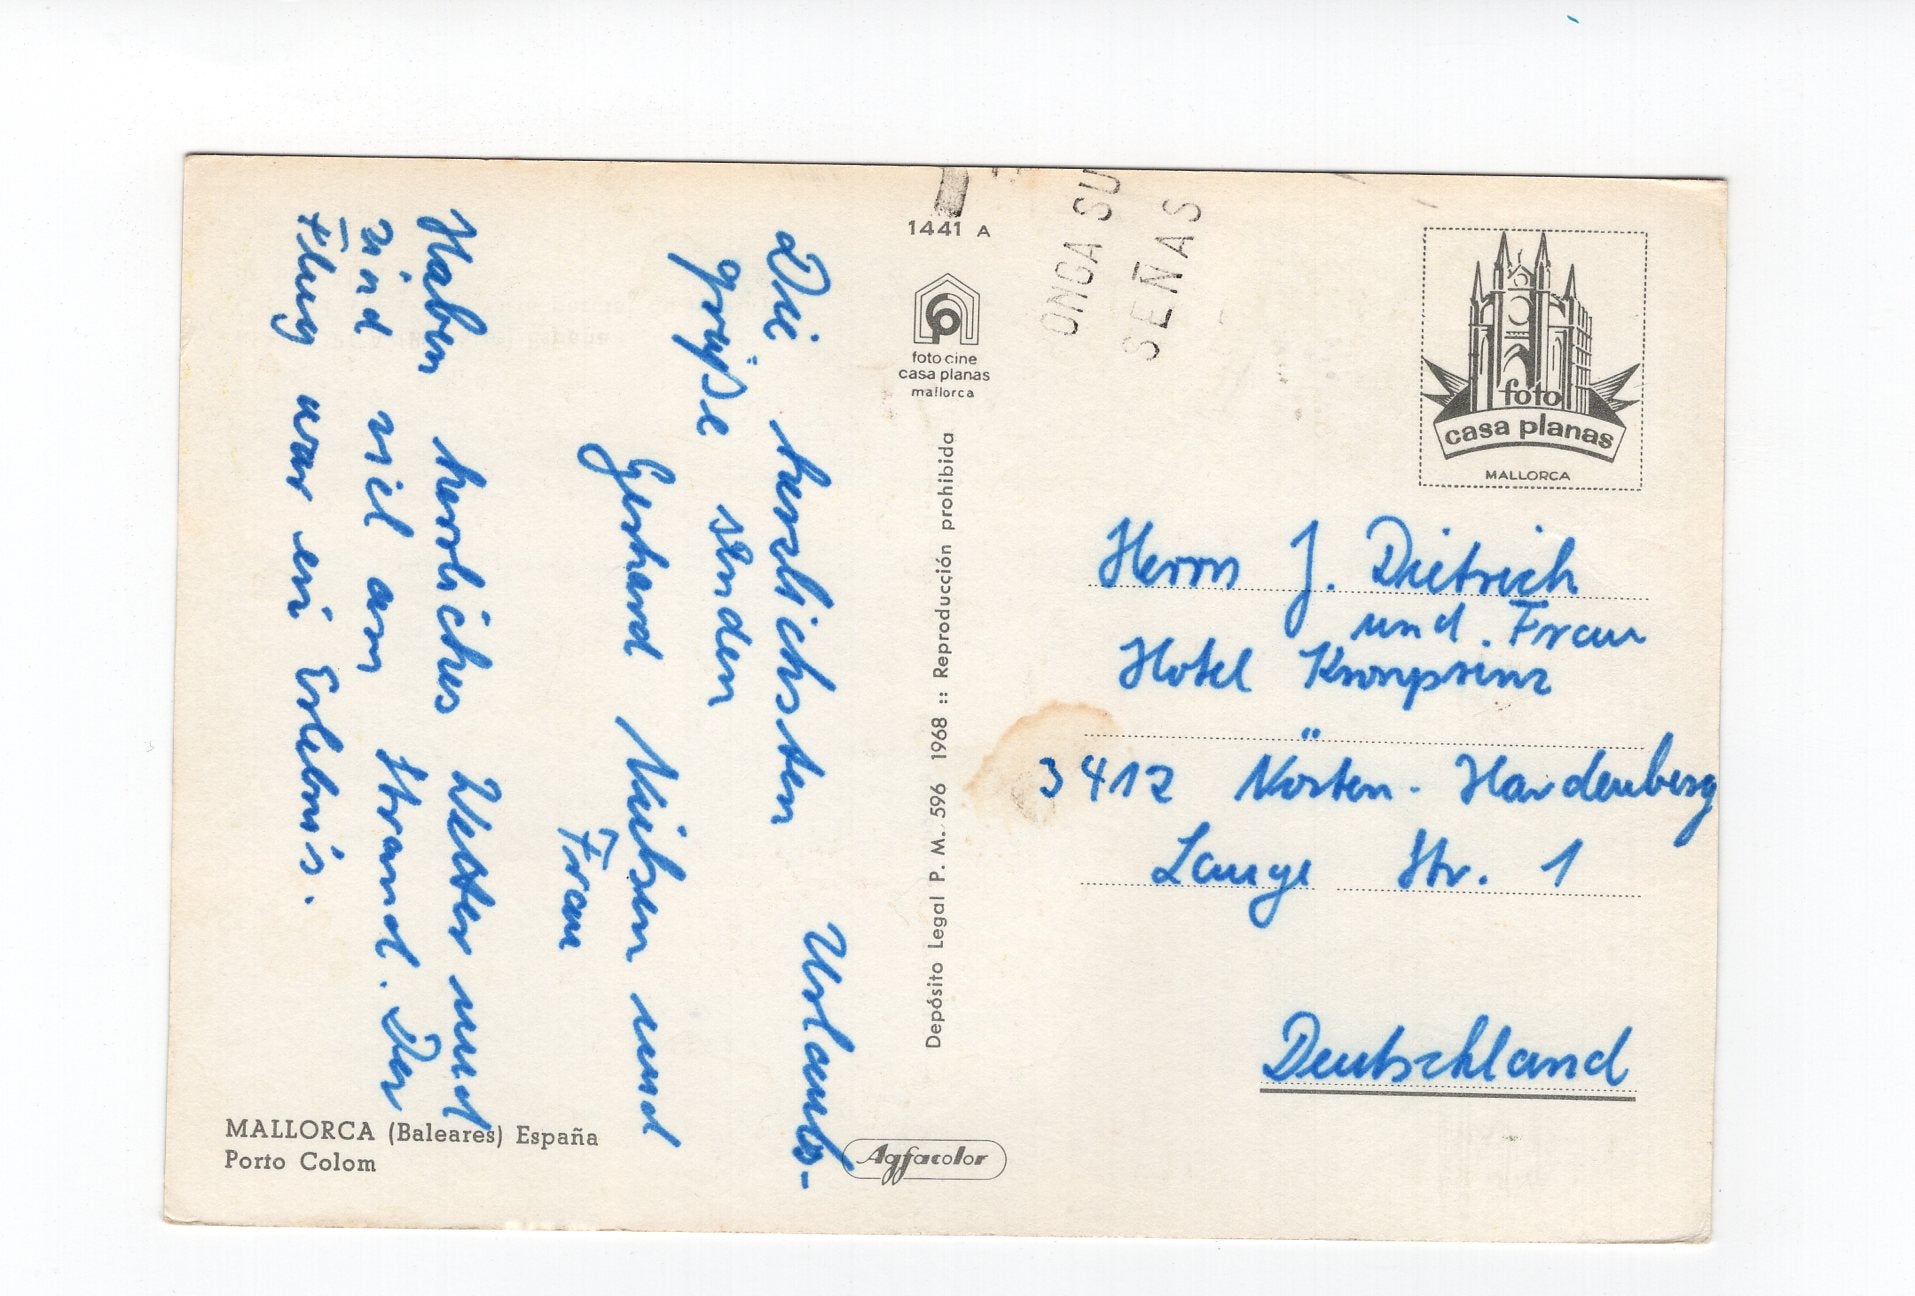 Die herzlichsten Urlaubs-
grüße senden
Gerhard und
Frau
Haben herrliches Wetter und
sind viel am Strand. Der
Flug war ein Erlebnis.
MALLORCA (Baleares) España
Porto Colom
1441 A
foto cine
casa planas
mallorca
Depósito Legal P. M. 596 1968 :: Reproducción prohibida
Agfacolor
ONGA SU
SEÑAS
foto
casa planas
MALLORCA
Herrn J. Dietrich
und Frau
Hotel Kronprinz
3412 Nörten-Hardenberg
Lange Str. 1
Deutschland